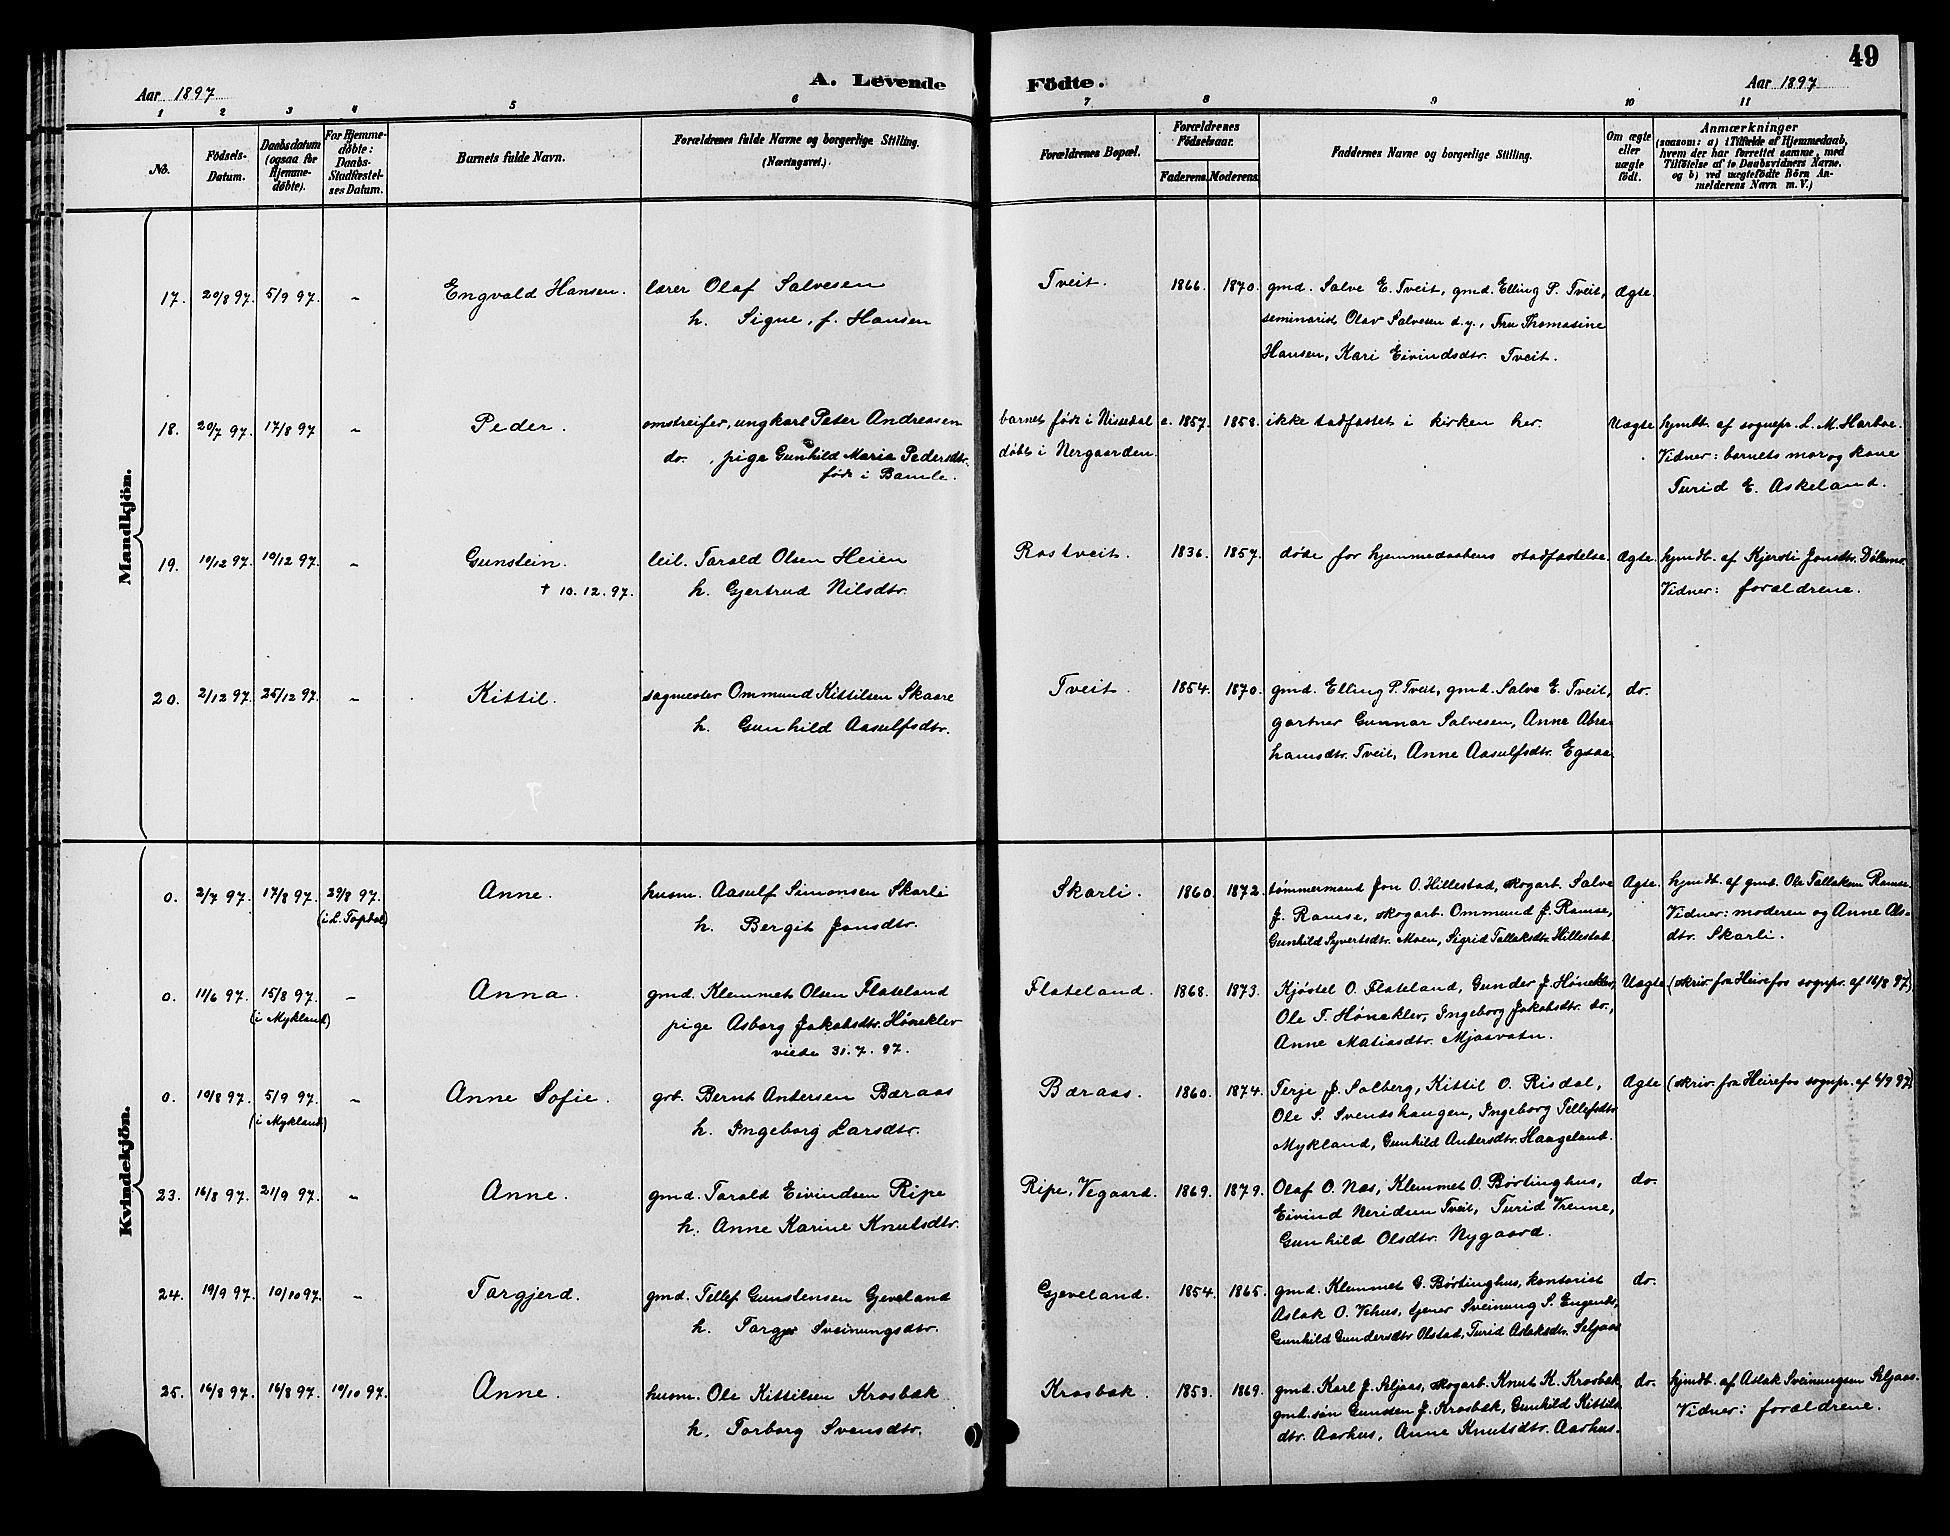 49
Aar 1897
A. Levende Födte.
Aar 1897
1 2 3 4 5 6 7 8 9 10 11
No.
Födsels-
Datum.
Daabsdatum
(ogsaa for
Hjemme-
døbte).
For Hjemme-
døbte:
Daabs-
Stadfæstel-
ses Datum.
Barnets fulde Navn.
Forældrenes fulde Navne og borgerlige Stilling.
(Næringsvei.)
Forældrenes Bopæl.
Forældrenes
Födselsaar.
Faderens. Moderens.
Faddernes Navne og borgerlige Stilling.
Om ægte
eller
uægte
födt.
Anmærkninger
(saasom: a) i Tilfælde af Hjemmedaab,
hvem der har forrettet samme, med
Tilföielse af to Daabsvidners Navne.
og b) ved uægtefödte Börn An-
melderens Navn m. V.)
Mandkjön.
17. 20/8 97. 5/9 97. - Engvald Hansen. lærer Olaf Salvesen Tveit. 1866. 1870. gmd. Salve E. Tveit, gmd. Elling P. Tveit, Ægte.
h. Signe, f. Hansen seminarist Olav Salvesen d.y., Fru Thomasine
Hansen, Kari Eivindsdtr. Tveit.
18. 20/7 97. 17/8 97 - Peder. omstreifer, ungkarl Peter Andreasen barnet født i Nissedal c. 1857. 1858. ikke stadfæstet i kirken her. Uægte hjmdt. af sognepr. L. M. Harboe.
do. , pige Gunhild Maria Pedersdtr. døbt i Nergaarden. Vidner: barnets mor og kone
født i Bamle. Turid E. Askeland.
19. 10/12 97. 10/12 97. - Gunstein. leil. Tarald Olsen Heien Rostveit. 1836. 1857. døde før hjemmedaabens stadfæstelse. Ægte. hjmdt. af Kjersti Jonsdtr. Dølemo.
† 10.12.97. h. Gjertrud Nilsdtr. Vidner: forældrene.
20. 2/12 97. 25/12 97. - Kittil. sagmester Ommund Kittilsen Skaare Tveit. 1854. 1870. gmd. Elling P. Tveit, gmd. Salve E. Tveit, do.
h. Gunhild Aasulfsdtr. gartner Gunnar Salvesen, Anne Abra-
hamsdtr. Tveit, Anne Aasulfsdtr. Egsaa.
Kvindekjön.
0. 2/7 97. 17/8 97. 29/8 97. Anne. husm. Aasulf Simonsen Skarli Skarli. 1860. 1872. tømmermand Jon O. Hillestad, skogarb. Salve Ægte. hjmdt. af gmd. Ole Tallaksen Ramse.
(i L. Topdal) h. Bergit Jonsdtr. J. Ramse, skogarb. Ommund J. Ramse, Vidner: moderen og Anne Ols-
Gunhild Syvertsdtr. Moen, Sigrid Tallaksdtr. Hillestad. dtr. Skarli.
0. 11/6 97. 15/8 97. - Anna. gmd. Klemmet Olsen Flateland Flateland. 1868. 1873. Kjøstel O. Flateland, Gunder J. Hønekler, Uægte (skriv. fra Heirefos sognepr. af 18/8 97)
(i Mykland) pige Asborg Jakobsdtr. Hønekler Ole T. Hønekler, Ingeborg Jakobsdtr. do.,
viede 31.7.97. Anne Matiasdtr. Mjaavatn.
0. 10/8 97. 5/9 97. - Anne Sofie. grb. Bernt Andersen Bæraas Bæraas. 1860. 1874. Terje J. Solberg, Kittil O. Risdal, Ægte (skriv. fra Heirefos sognepr. af 6/9 97)
(i Mykland) h. Ingeborg Larsdtr. Ole S. Svendshaugen, Ingeborg Tellefsdtr.
Mykland, Gunhild Andersdtr. Haageland.
23. 16/8 97. 21/9 97. - Anne. gmd. Tarald Eivindsen Ripe Ripe, Vegaard. 1869. 1879. Olaf O. Næs, Klemmet O. Børtinghus, do.
h. Anne Karine Knutsdtr. Eivind Neridsen Tveit, Turid Vrenne,
Gunhild Olsdtr. Nygaard.
24. 19/9 97. 10/10 97. - Torgjerd. gmd. Tellef Gunstensen Gjeveland Gjeveland. 1854. 1865. gmd. Klemmet G. Børtinghus, kontorist do.
h. Torgjer Sveinungsdtr. Aslak O. Vehus, tjener Sveinung S. Engenes,
Gunhild Gundersdtr. Olstad, Turid Aslaksdtr. Seljaas
25. 16/8 97. 16/8 97. 10/10 97. Anne. husm. Ole Kittilsen Krosbæk Krosbæk. 1853. 1869. gmd. Karl J. Seljaas, skogarb. Knut K. Krosbæk, do. hjmdt. af Aslak Sveinungsen Seljaas.
h. Torborg Svensdtr. gmd. søn Gunsten J. Krosbæk, Gunhild Kittils- Vidner: forældrene.
dtr. Aarhus, Anne Knutsdtr. Aarhus.